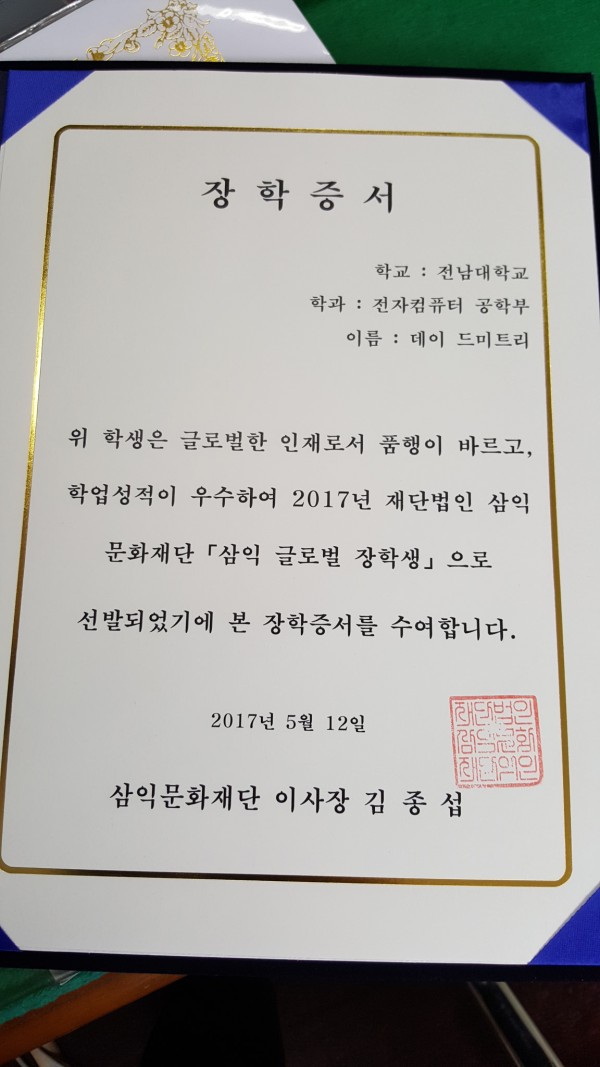 장 학 증 서
학교 : 전남대학교
학과 : 전자컴퓨터 공학부
이름 : 데이 드미트리
위 학생은 글로벌한 인재로서 품행이 바르고,
학업성적이 우수하여 2017년 재단법인 삼익
문화재단 「삼익 글로벌 장학생」 으로
선발되었기에 본 장학증서를 수여합니다.
2017년 5월 12일
재단법인
삼익문화
재단의인
삼익문화재단 이사장 김 종 섭